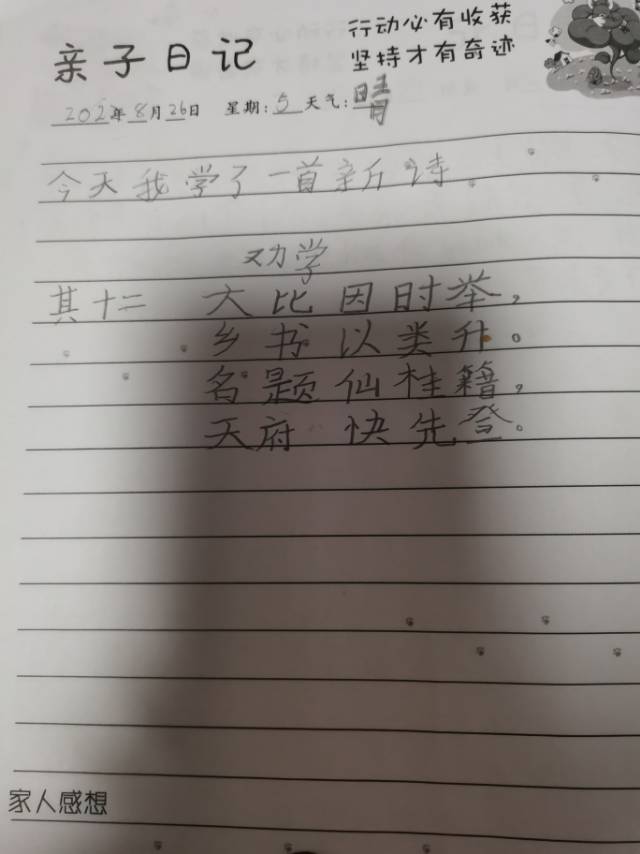 行动必有收获
坚持才有奇迹
亲子日记
2022年8月26日 星期:5 天气:晴
今天我学了一首新诗
劝学
其十二 大比因时举,
乡书以类升。
名题仙桂籍,
天府快先登。
家人感想